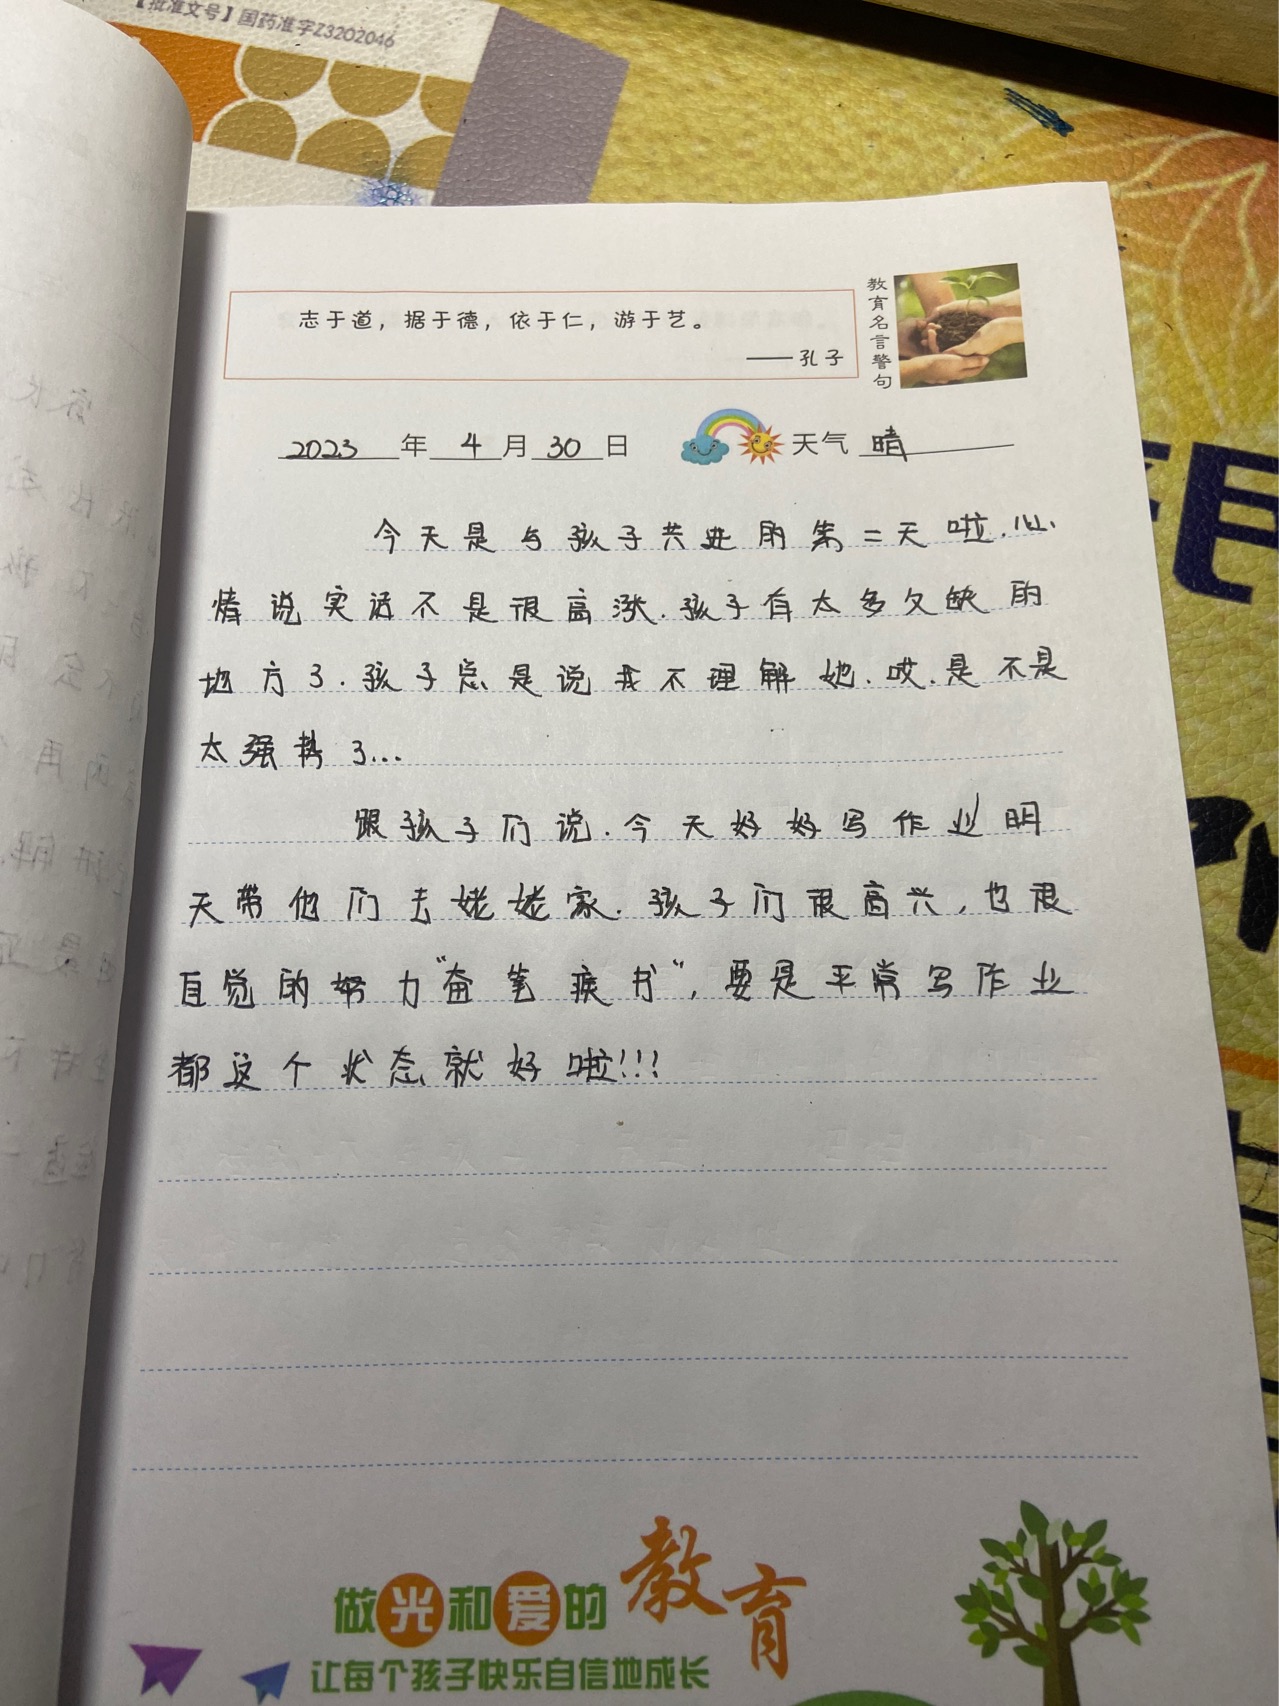 【批准文号】国药准字Z3202046
志于道，据于德，依于仁，游于艺。
——孔子
教育名言警句
2023年4月30日 天气 晴
今天是与孩子共进的第二天啦.心
情说实话不是很高涨.孩子有太多欠缺的
地方了.孩子总是说我不理解她.哎.是不是
太强势了...
跟孩子们说.今天好好写作业明
天带他们去姥姥家.孩子们很高兴,也很
自觉的努力“奋笔疾书”,要是平常写作业
都这个状态就好啦!!!
做光和爱的教育
让每个孩子快乐自信地成长